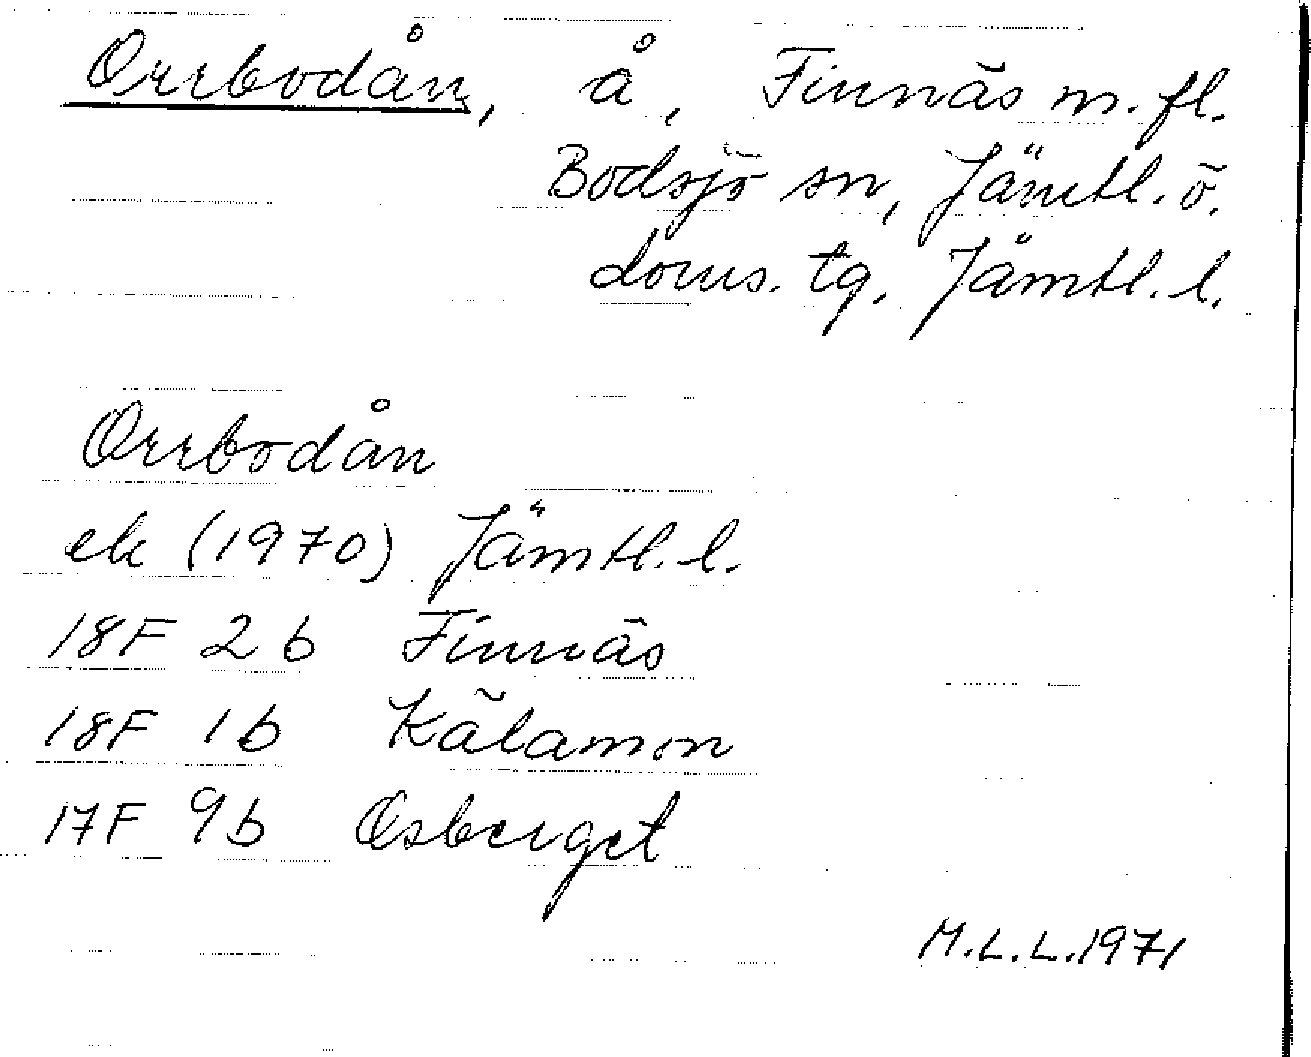 Orrbodån, å, Finnäs m. fl.
Bodsjö sn, Jämtl. ö.
doms. tg. Jämtl. l.
Orrbodån
ek (1970) Jämtl. l.
18F 2b Finnäs
18F 1b Kälamon
17F 9b Osberget
M.L.L. 1971